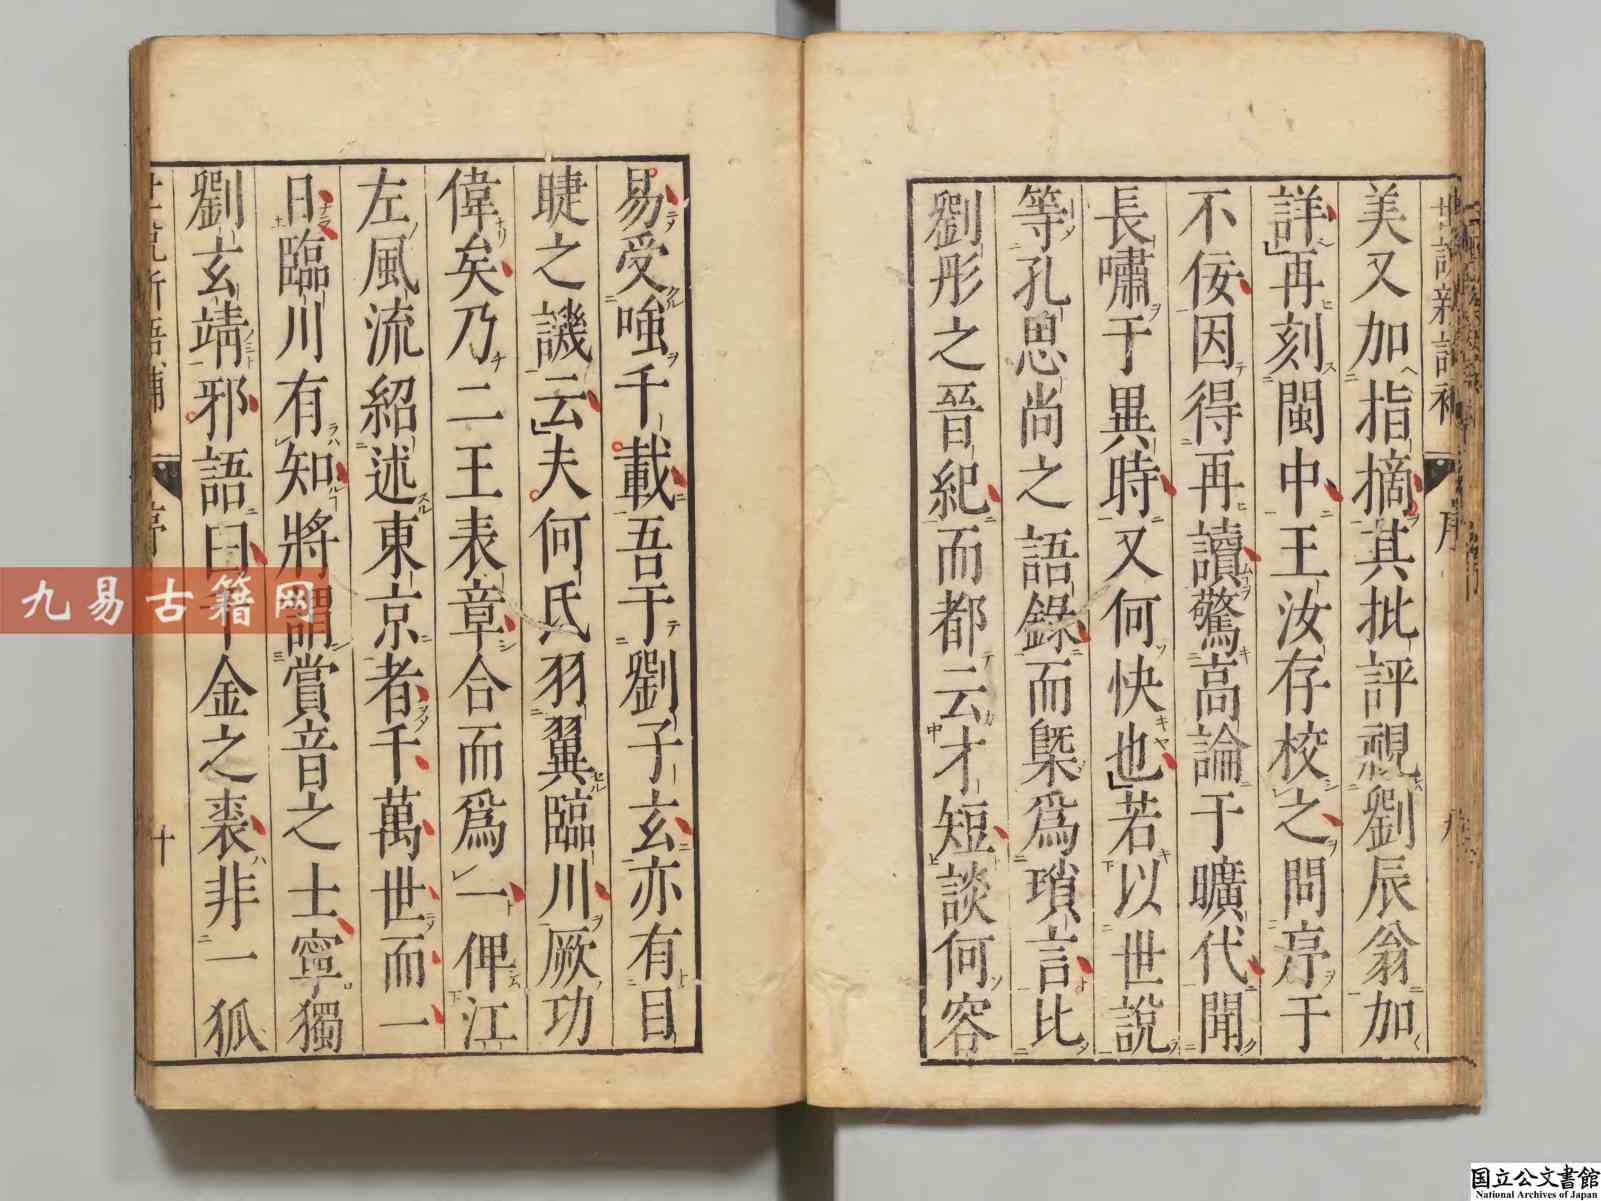 美又加指摘其批評視劉辰翁加
詳再刻閩中王汝存校之問序于
不佞因得再讀驚高論于曠代聞
長嘯于異時又何快也若以世說
等孔思尚之語錄而槩爲瑣言比
劉彤之晉紀而都云才短談何容
易受嗤千載吾于劉子玄亦有目
睫之譏云夫何氏羽翼臨川厥功
偉矣乃二王表章合而爲一俾江
左風流紹述東京者千萬世而一
日臨川有知將謂賞音之士寧獨
劉玄靖邪語曰千金之裘非一狐
世說新語補
序
十
九易古籍网
国立公文書館
National Archives of Japan